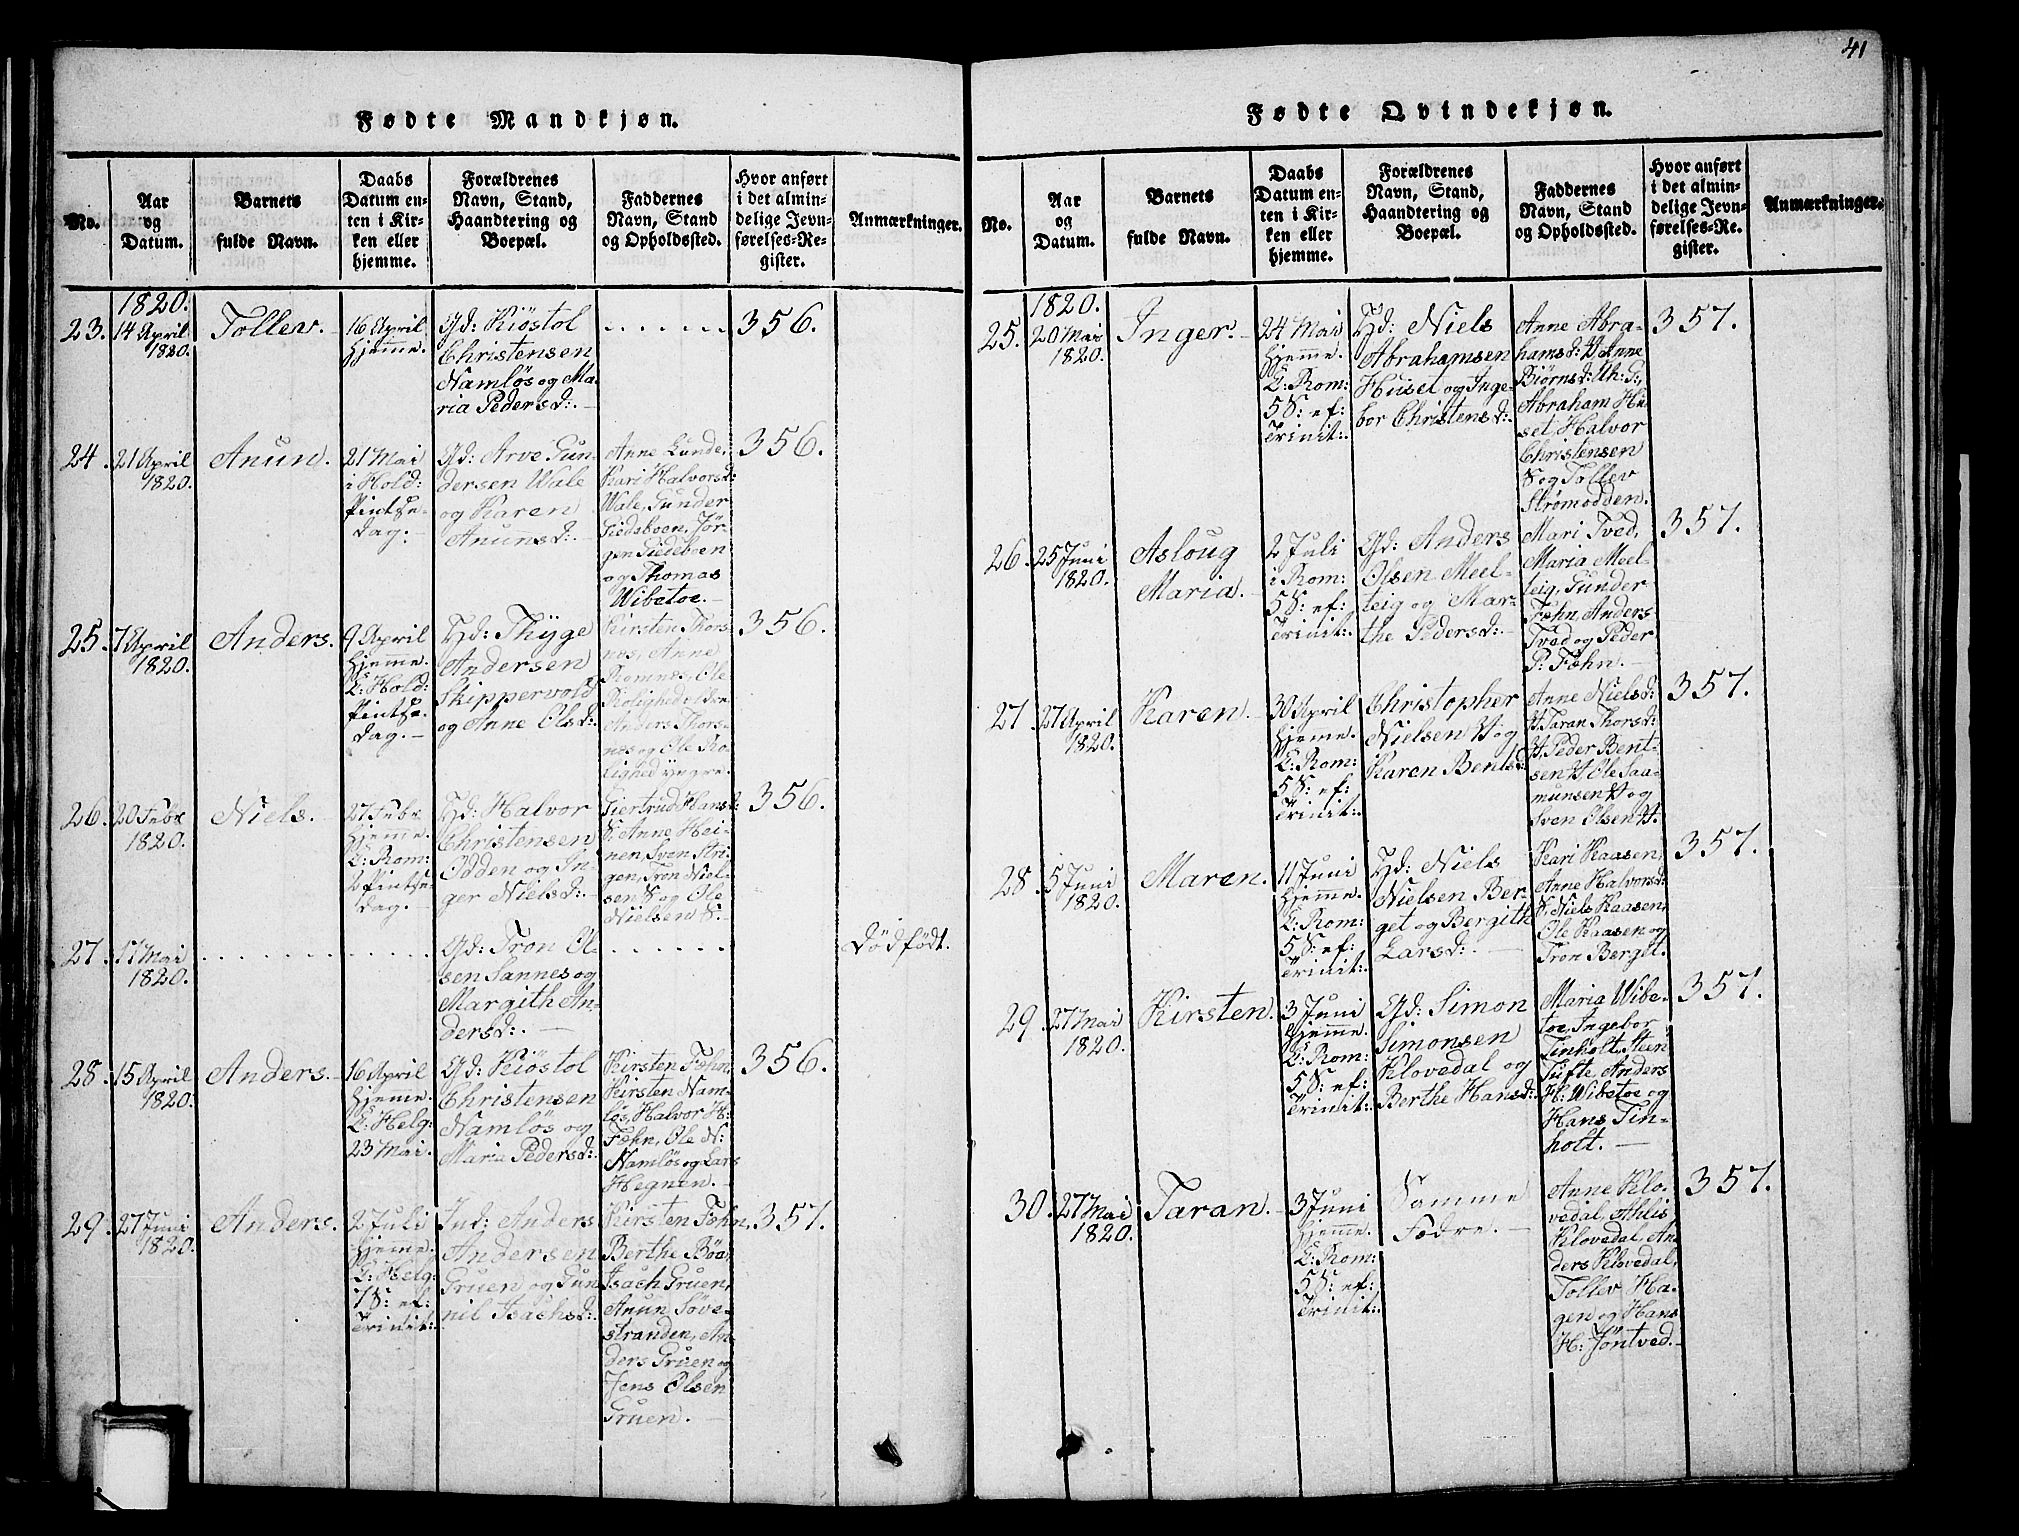 41
Fødte Mandkjøn.
No.
Aar
og
Datum.
Barnets
fulde Navn.
Daabs
Datum en-
ten i Kir-
ken eller
hjemme.
Forældrenes
Navn, Stand,
Haandtering og
Boepæl.
Faddernes
Navn, Stand
og Opholdssted.
Hvor anført
i det almin-
delige Jevn-
førelses-Re-
gister.
Anmærkninger.
23.
1820.
14 April
1820.
Tollev.
16 April
hjemme.
Gd: Kiöstol
Christensen
Namlös og Ma-
ria Pedersd:. –
. . . . . .
356.
24.
21 April
1820.
Anun.
21 Mai
i Hold:
Pintse-
dag. –
Gd: Arve Gun-
dersen Wale
og Karen
Anunsd:.
Anne Lunde,
Kari Halvorsd:
Wale, Gunder
Giedeboen, Jör-
gen Giedeboen
og Thomas
Wibetoe. –
356.
25.
7 April
1820.
Anders.
9 April
hjemme.
C: Hold:
Pintse-
dag. –
Hd: Thÿge
Andersen
Skippervold
og Anne Olsd:
Kirsten Thors-
nes, Anne
Romnes, Ole
Rolighed elden
Anders Thors-
nes og Ole Ro-
lighed yngre.
356.
26.
20 Febr
1820.
Niels. –
27 Febr
hjemme.
C: Rom:
2 Pintse-
dag. –
Hd: Halvor
Christensen
Odden og In-
ger Nielsd:. –
Giertrud Hansd:
S: Anne Hei-
nen, Sven Stri-
gen, Tron Niel-
sen S: og Ole
Nielsen S: –
356.
27.
17 Mai
1820.
. . . . . . .
. . . . .
Gd: Tron Ol-
sen Sannes og
Margith An-
dersd:. –
. . . . . .
Dödfödt.
28.
15 April
1820.
Anders. –
16 April
hjemme.
C: Helg:
23 Mai.
Gd: Kiöstol
Christensen
Namlös og
Maria Pedersd:.
Kirsten Føhn,
Kirsten Nam-
lös, Halvor H:
Føhn, Ole N:
Namlös og Lars
Hegnen. –
356.
29.
27 Juni
1820.
Anders.
2 Juli
hjemme.
C: Helg:
7 S: ef:
Trinit:.
Ind: Anders
Andersen
Gruen og Gun-
nil Isachsd:.
Kirsten Føhn,
Berthe Böa,
Isach Gruen,
Anun Söve-
stranden, An-
ders Gruen og
Jens Olsen
Gruen. –
357.
Fødte Qvindekjøn.
No.
Aar
og
Datum.
Barnets
fulde Navn.
Daabs
Datum en-
ten i Kir-
ken eller
hjemme.
Forældrenes
Navn, Stand,
Haandtering og
Boepæl.
Faddernes
Navn, Stand
og Opholdssted.
Hvor anført
i det almin-
delige Jevn-
førelses-Re-
gister.
Anmærkninger.
25.
1820.
20 Mai
1820.
Inger. –
24 Mai
hjemme.
C: Rom:
5 S: ef:
Trinit:.
Hd: Niels
Abrahamsen
Huset og Inge-
bor Christensd:.
Anne Abra-
hamsd: Anne
Biörnsd:
Abraham Hu-
set, Halvor
Christensen
S og Tollev
Strømodden.
357.
26.
25 Juni
1820.
Asloug
Maria. –
2 Juli
i Rom:
5 S: ef:
Trinit:.
Gd: Anders
Olsen Meel-
teig og Mar-
the Pedersd: –
Mari Tved,
Maria Meel-
teig, Gunder
Føhn, Anders
Tved og Peder
P: Føhn. –
357.
27.
27 April
1820.
Karen. –
30 April
hjemme.
C: Rom:
5 S: ef:
Trinit:.
Christopher
Nielsen og
Karen Bentsd:
Anne Nielsd:
Taran Thorsd:
Peder Bent-
sen Ole Saa-
munsen og
Sven Olsen
357.
28.
5 Juni
1820.
Maren.
11 Juni
hjemme.
C: Rom:
5 S: ef:
Trinit:.
Hd: Niels
Nielsen Ber-
get og Bergith
Larsd:. –
Kari Kaasen,
Anne Halvorsd:
S: Niels Kaasen,
Ole Kaasen og
Tron Berget.
357.
29.
27 Mai
1820.
Kirsten.
3 Juni
hjemme.
C: Rom:
5 S: ef:
Trinit:.
Gd: Simon
Simonsen
Klovedal og
Berthe Hansd:.
Maria Wibe-
toe, Ingebor
Tinholt, Steen
Tufte, Anders
H: Wibetoe og
Hans Tin-
holt. –
357.
30.
27 Mai
1820.
Taran. –
3 Juni
hjemme.
C: Rom:
5 S: ef:
Trinit:.
Samme
Fædre. –
Anne Klo-
vedal, Ahlis
Klovedal, An-
ders Klovedal,
Tollev Ha-
gen og Hans
H: Jöntved. –
357.